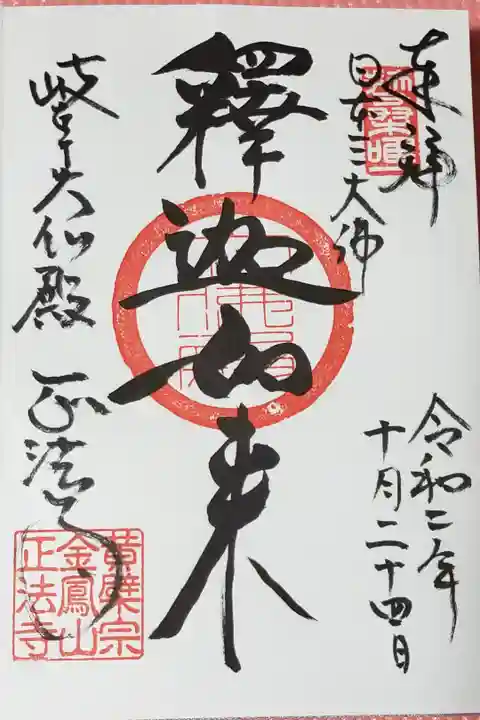 奉拝
日本三大佛
釋迦如来
令和二年
十月二十四日
岐阜大仏殿 正法寺
黄檗宗
金鳳山
正法寺